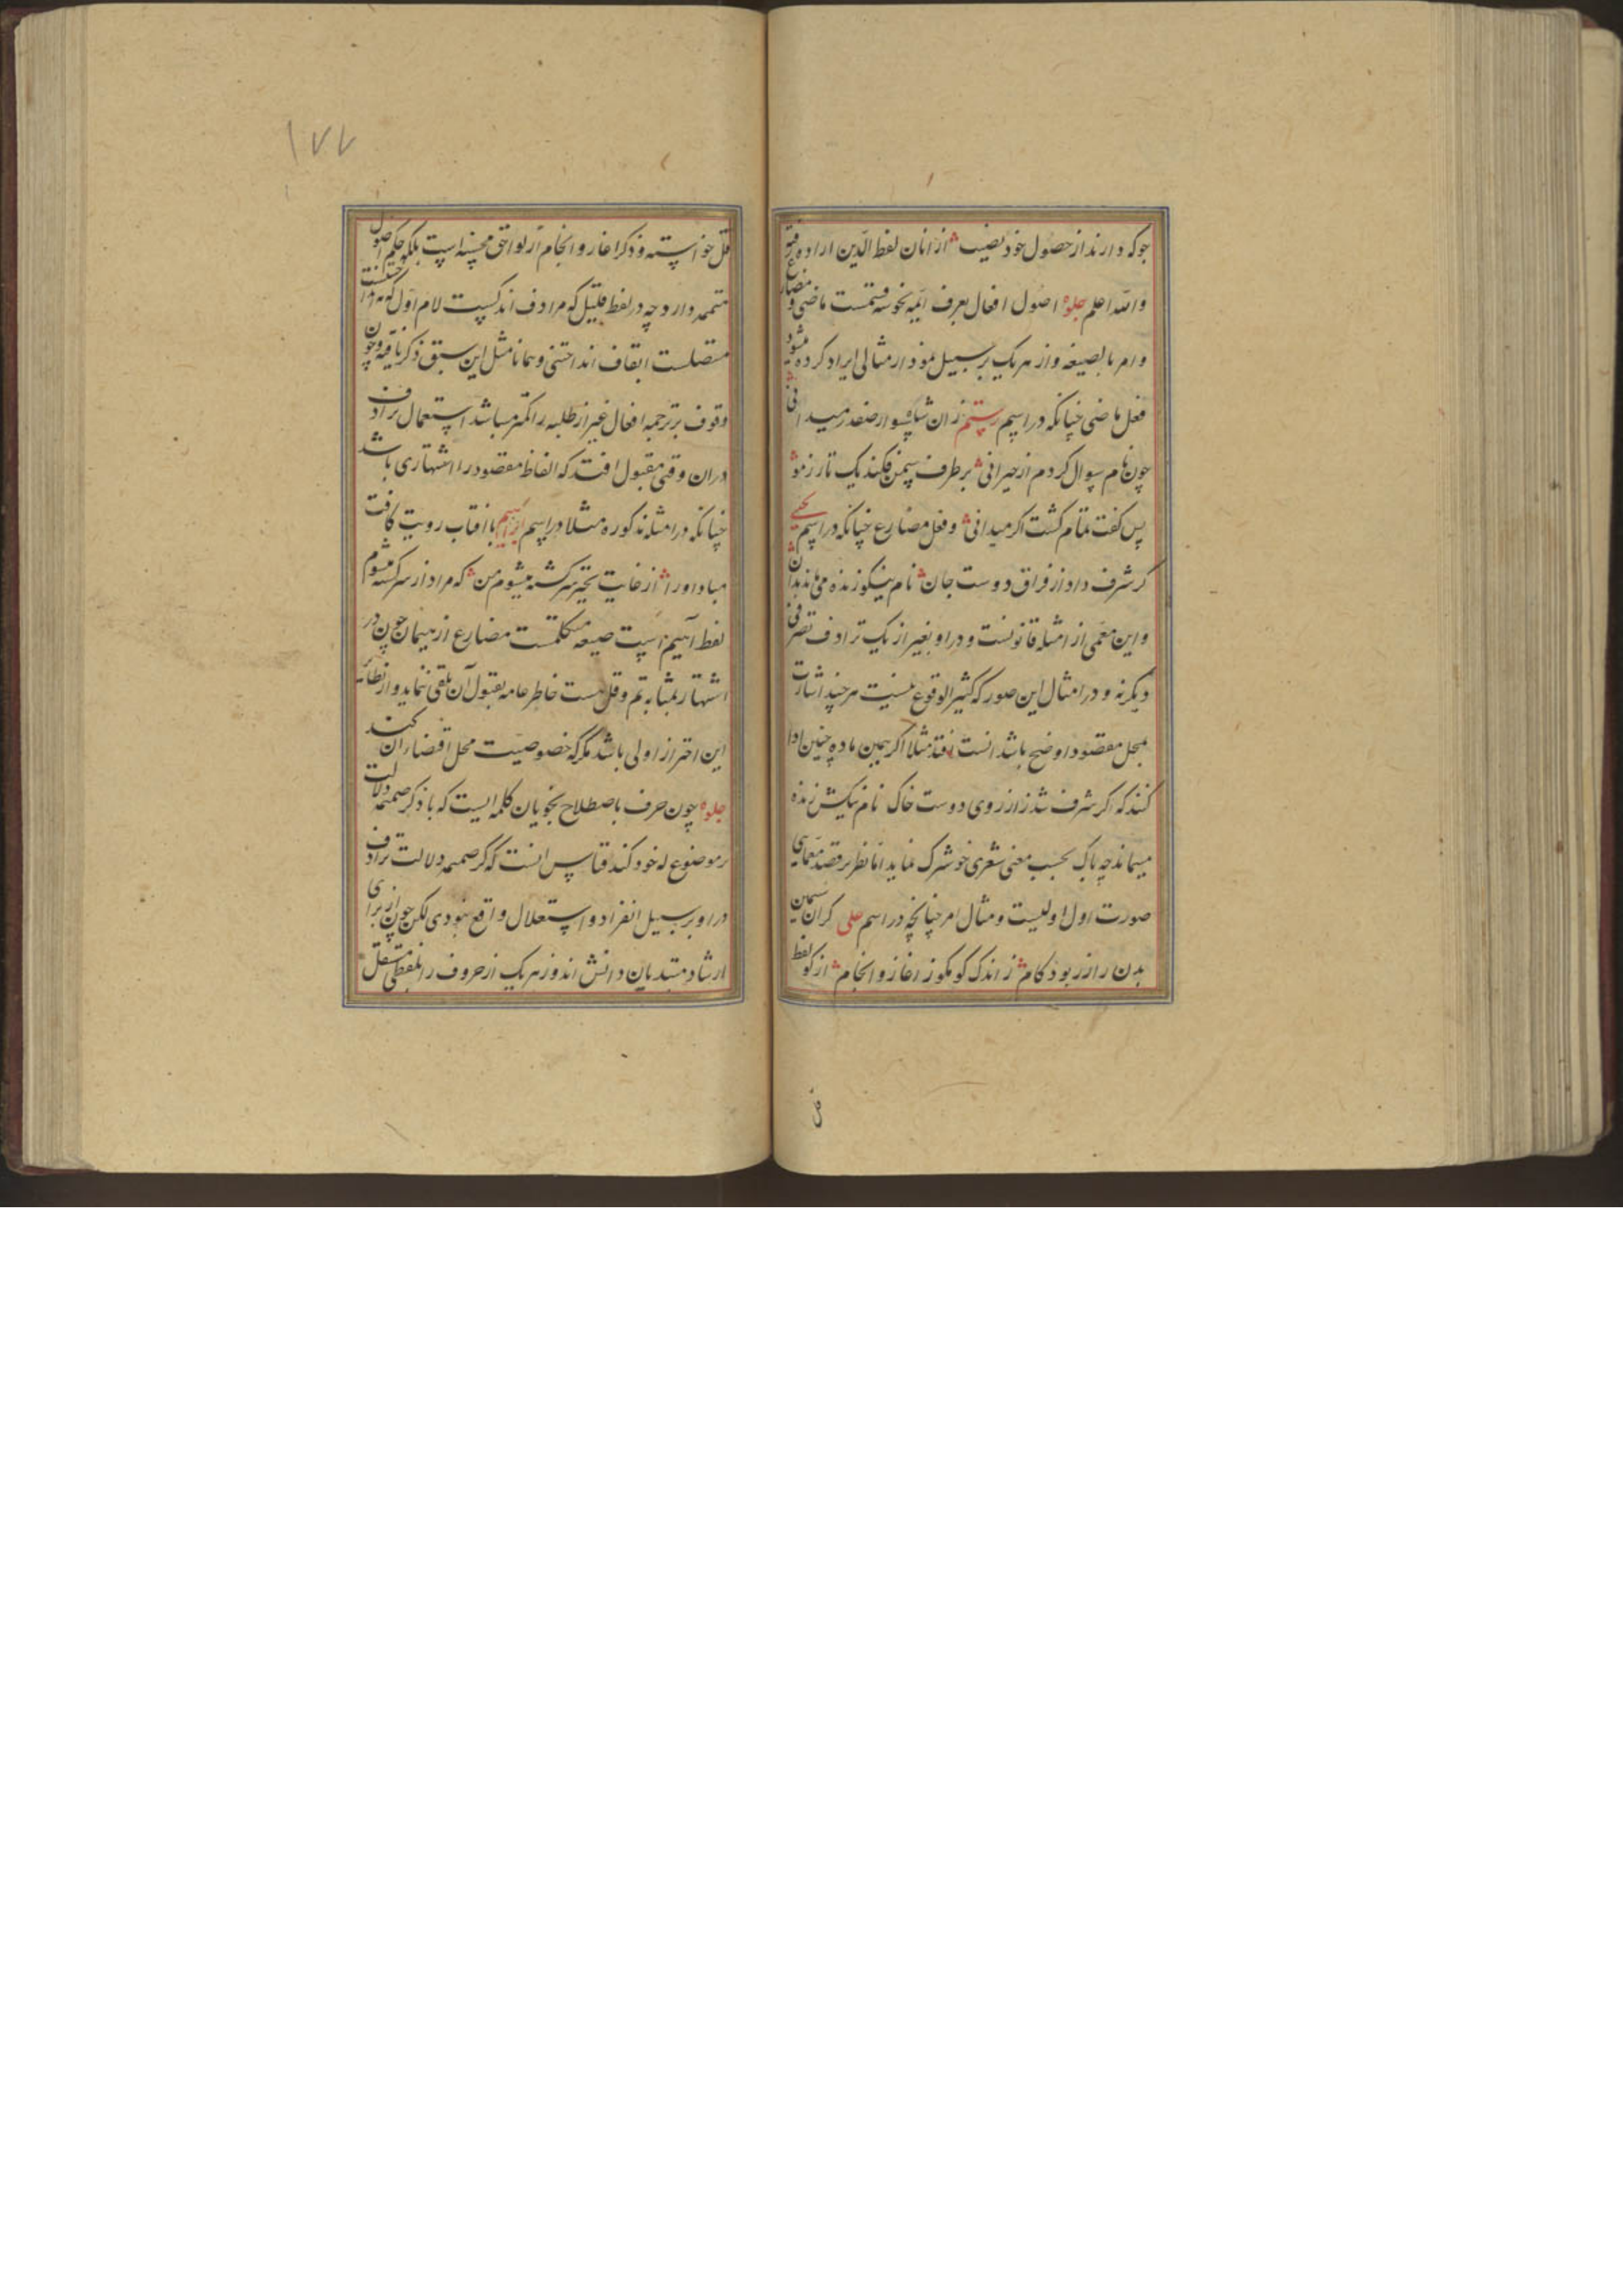 جو که دارند از حصول خود نصیب از انان لفظ الذین اراده رفته
والله اعلم جلوه اصول افعال بعرف ایمه نحو سه قسمست ماضی و مضارع
و امر بالصیغه و از هر یک بر سبیل نمودار مثالی ایراد کرده میشود
فعل ماضی چنانکه در اسم رستم زان شاه سوار صفدر میدانی
چون نام سوال کردم از حیرانی بر طرف سمن فکند یک تار ز مو
پس کفت تمام کشت اکر میدانی و فعل مضارع چنانکه در اسم یحیی
کر شرف داد از فراق دوست جان نام نیکو زنده می ماند بدان
و این معمی از امثله قانونست و در او بغیر از یک ترادف تصرفی
دیکر نه و در امثال این صور که کثیر الوقوع نیست هر چند اشارت
بمحل مقصود اوضح باشد انست مثلا اکر همین ماده چنین ادا
کنند که اکر شرف شد ز ارزوی دوست خاک نام نیکش زنده
میماند چه باک بحسب معنی شعری خوشترک نماید اما نظر بر قصد معمایی
صورت اول اولیست و مثال امر چنانچه در اسم علی کران سیمین
بدن راز ربود کام ز اندک کو مکو ز اغاز و انجام از کو لفظ
قل
۱۷۷
قل خواسته و ذکر اغاز و انجام از لواحق محسنه است بلکه حکم اصول
متممه دارد چه در لفظ قلیل که مرادف اندکست لام اول که
متصلست بقاف انداختنی و همانا مثل این سبق ذکر یافته و چون
وقوف بر ترجمه افعال غیر از طلبه را کمتر میباشد استعمال ترادف
در ان وقتی مقبول افتد که الفاظ مقصود را اشتهاری باشد
چنانکه در امثله مذکوره مثلا در اسم با افتاب رویت کافت
مبادا و را از غایت تحیر سرکشته میشوم من که مراد از سرکشته میشوم
لفظ اهیم است صیغه متکلمست مضارع از هیمان چون در
اشتهار بمثابه تم و قل نیست خاطر عامه بقبول آن تلقی ننماید و از نظائر
این احتراز اولی باشد مکر که خصوصیت محل اقتضاء ان کند
جلوه چون حرف باصطلاح نحویان کلمه ایست که با ذکر ضمیمه دلالت
بر موضوع له خود کند قیاس انست که کر ضمیمه دلالت ترادف
در او بر سبیل انفراد و استقلال واقع نبودی لکن چون از برای
ارشاد مبتدیان دانش اندوز هر یک از حروف را بلفظی مستقل